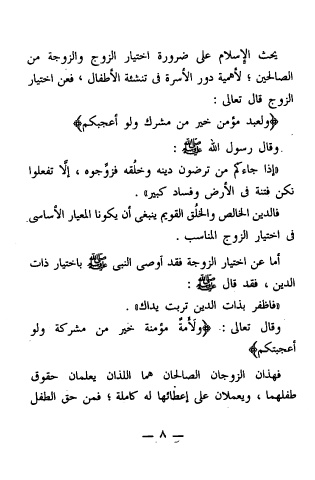 يحث الإسلام على ضرورة اختيار الزوج والزوجة من
الصالحين ؛ لأهمية دور الأسرة فى تنشئة الأطفال ، فعن اختيار
الزوج قال تعالى :
﴿ولعبد مؤمن خير من مشرك ولو أعجبكم﴾
وقال رسول الله ﷺ :
«إذا جاءكم من ترضون دينه وخلقه فزوجوه ، إلّا تفعلوا
تكن فتنة فى الأرض وفساد كبير» .
فالدين الخالص والخلُق القويم ينبغى أن يكونا المعيار الأساسى
فى اختيار الزوج المناسب .
أما عن اختيار الزوجة فقد أوصى النبى ﷺ باختيار ذات
الدين ، فقد قال ﷺ :
«فاظفر بذات الدين تربت يداك» .
وقال تعالى : ﴿ولَأمةٌ مؤمنة خير من مشركة ولو
أعجبتكم﴾
فهذان الزوجان الصالحان هما اللذان يعلمان حقوق
طفلهما ، ويعملان على إعطائها له كاملة ؛ فمن حق الطفل
— ٨ —